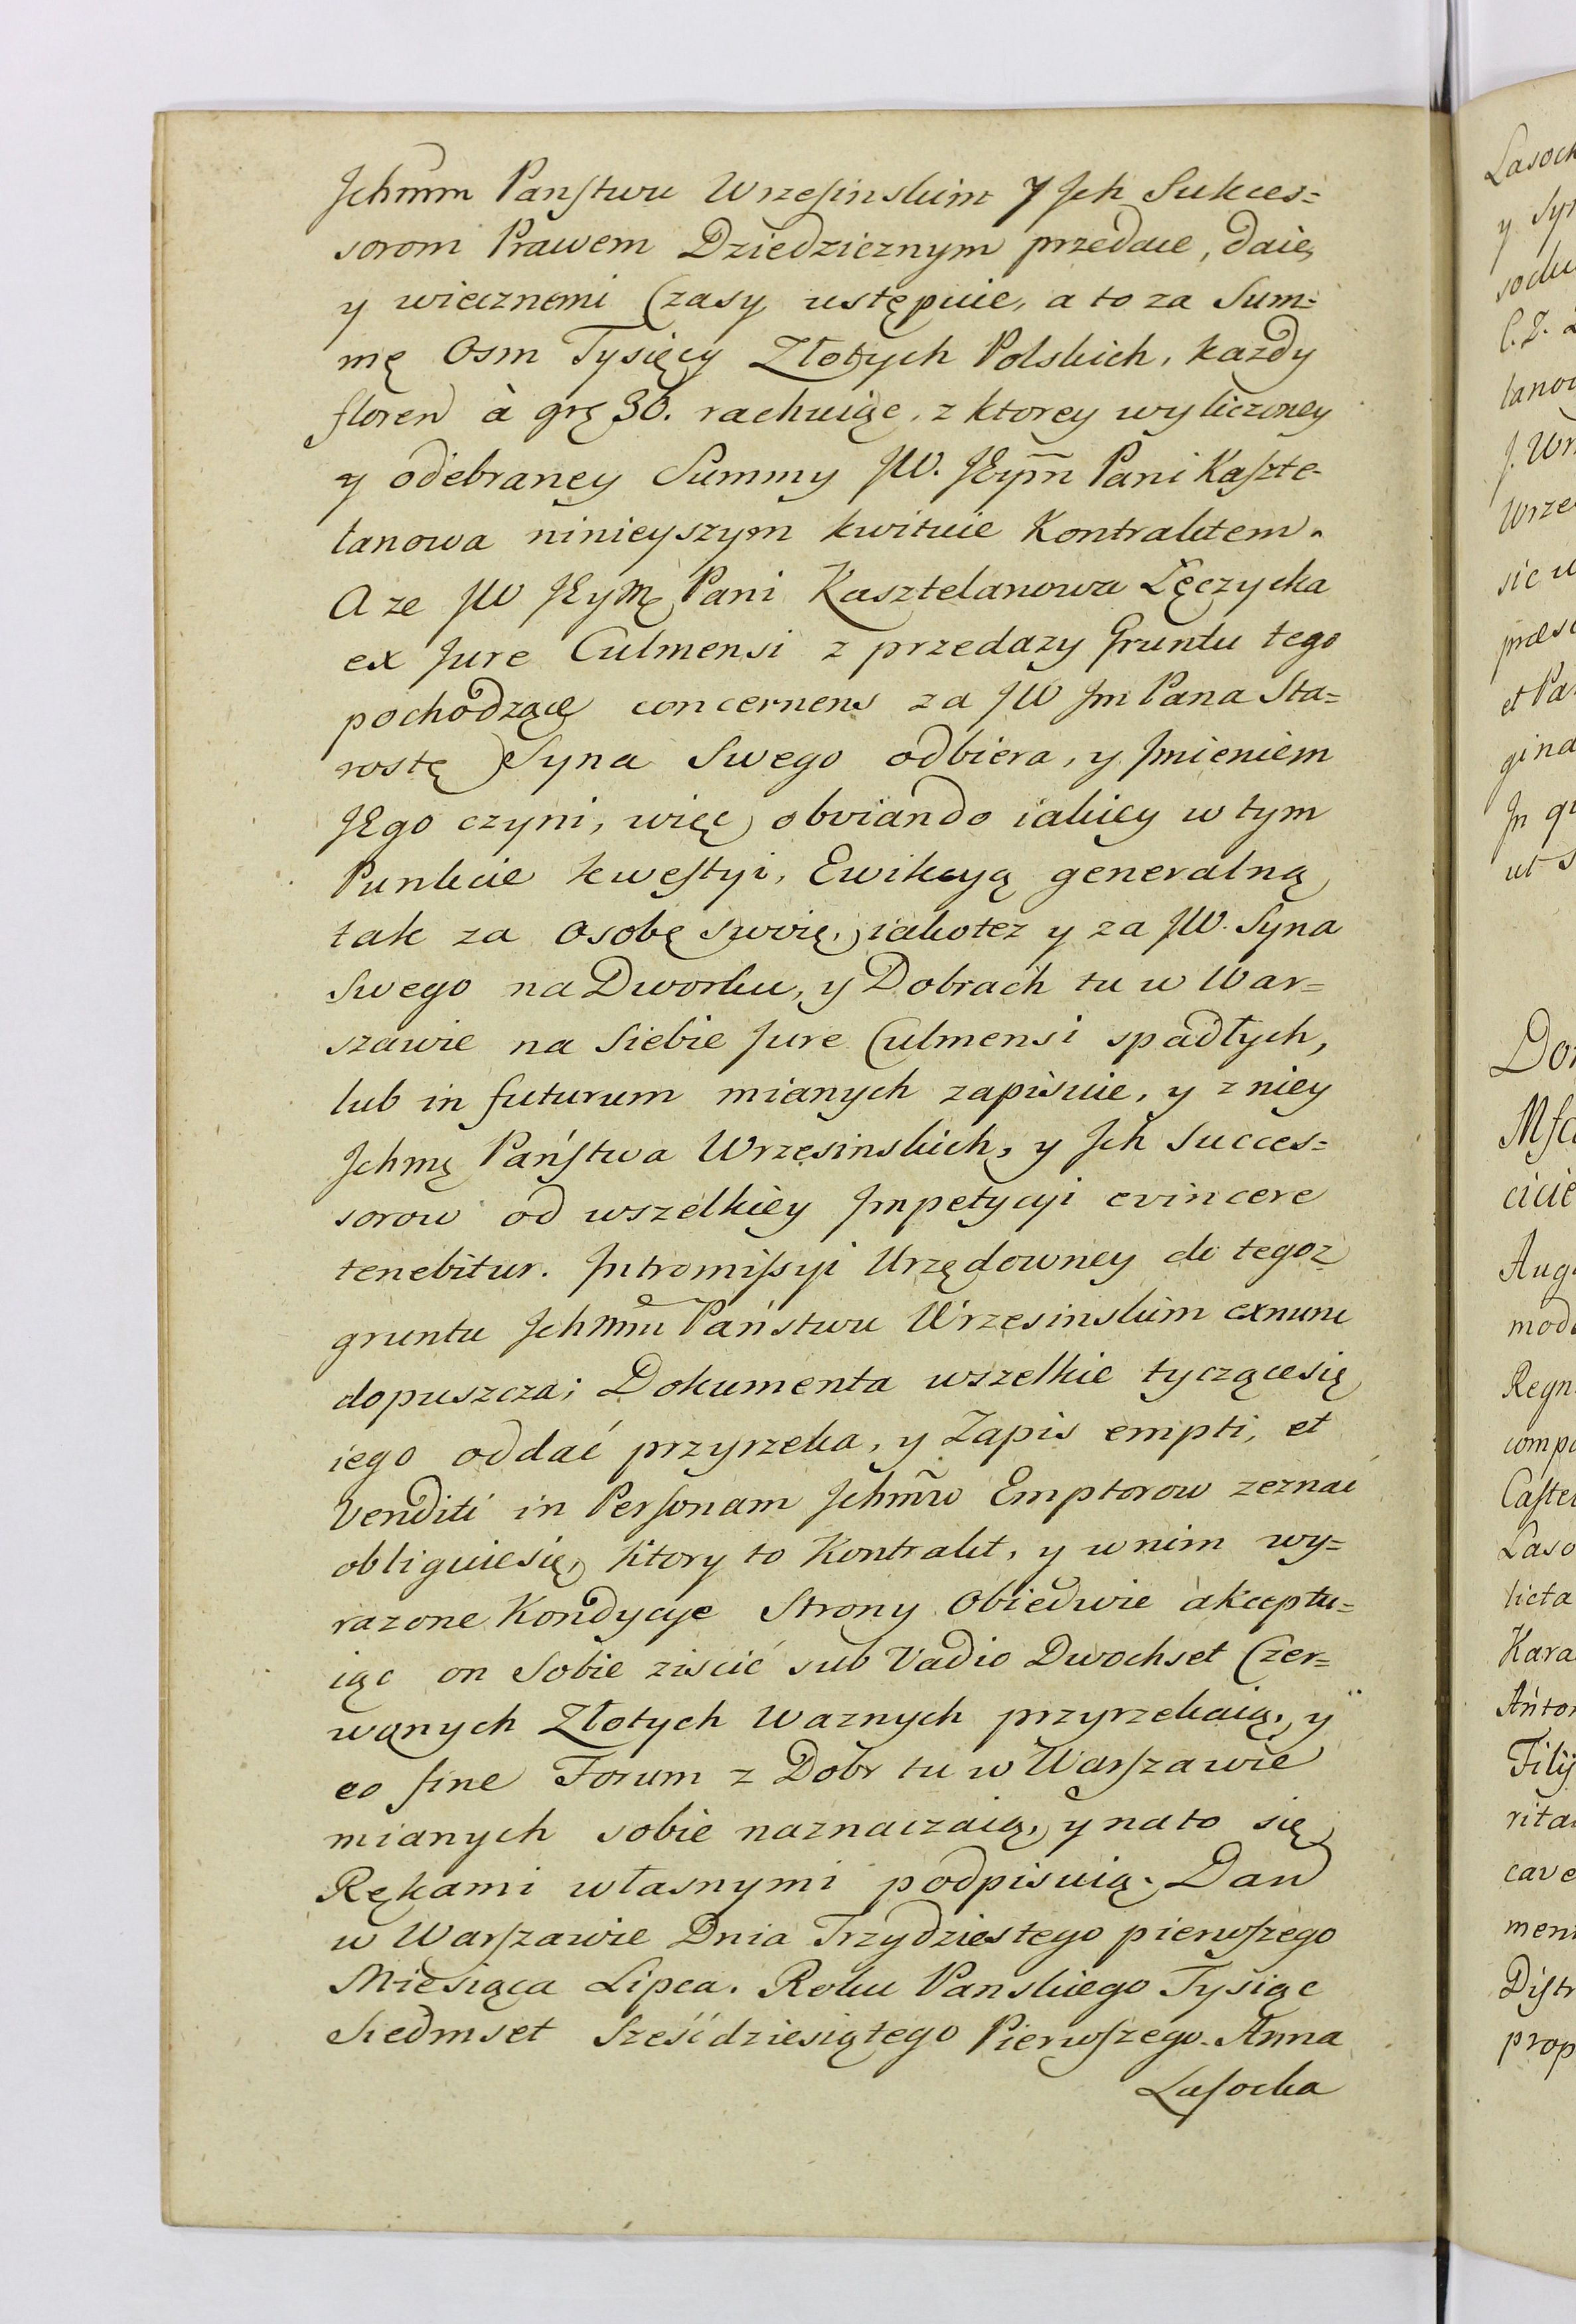 Jchmm Panſtwu Wrzeſinskim y Jch Sukces=
sorom Prawem Dziedzicznym przedaie, daie,
y wiecznemi Czasy ustępuie, a to za Sum=
mę Osm Tysięcy Złotych Polskich, kazdy
floren à grę 30. rachuiąc, z ktorey wyliczoney
y odebraney Summy JW. JEym̃ Pani Kaſzte-
lanowa ninieyszym kwituie Kontraktem.
A ze JW JEymę Pani Kasztelanowa Łęczycka
ex Jure Culmensi z przedazy Gruntu tego
pochodzącę concernens za JW Jm Pana Sta=
rostę Syna Swego odbiera, y Jmieniem
JEgo czyni, więc obviando iakiey w tym
Punkcie kweſtyi, Ewikcyą generalną
tak za Osobę swoię, iakotez y za JW. Syna
Swego na Dworku, y Dobrach tu w War=
szawie na Siebie Jure Culmensi spadłych,
lub in futurum mianych zapisuie, y z niey
Jchmę Pańſtwa Wrzesinskich, y Jch Succes=
sorow od wszelkiey Jmpetycyi evincere
tenebitur. Jntromiſsyi Urzędowney do tegoz
gruntu Jchmm Państwu Wrzesinskim exnunc
dopuszcza; Dokumenta wszelkie tyczącesię
iego oddać przyrzeka, y Zapis empti, et
Venditi in Perſonam Jchm̃w Emptorow zeznać
obliguiesię, ktory to Kontrakt, y w nim wy=
razone Kondycye Strony Obiedwie akceptu=
iąc on Sobie ziscić sub Vadio Dwochset Czer=
wonych Złotych Waznych przyrzekaią, y
eo fine Forum z Dobr tu w Warſzawie
mianych sobie naznaczaią, y na to się
Rękami własnymi podpisuią. Dan
w Warſzawie Dnia Trzydziestego pierwſzego
Miesiąca Lipca. Roku Panskiego Tysiąc
Siedmset Sześćdziesiątego Pierwſzego. Anna
Laſocka